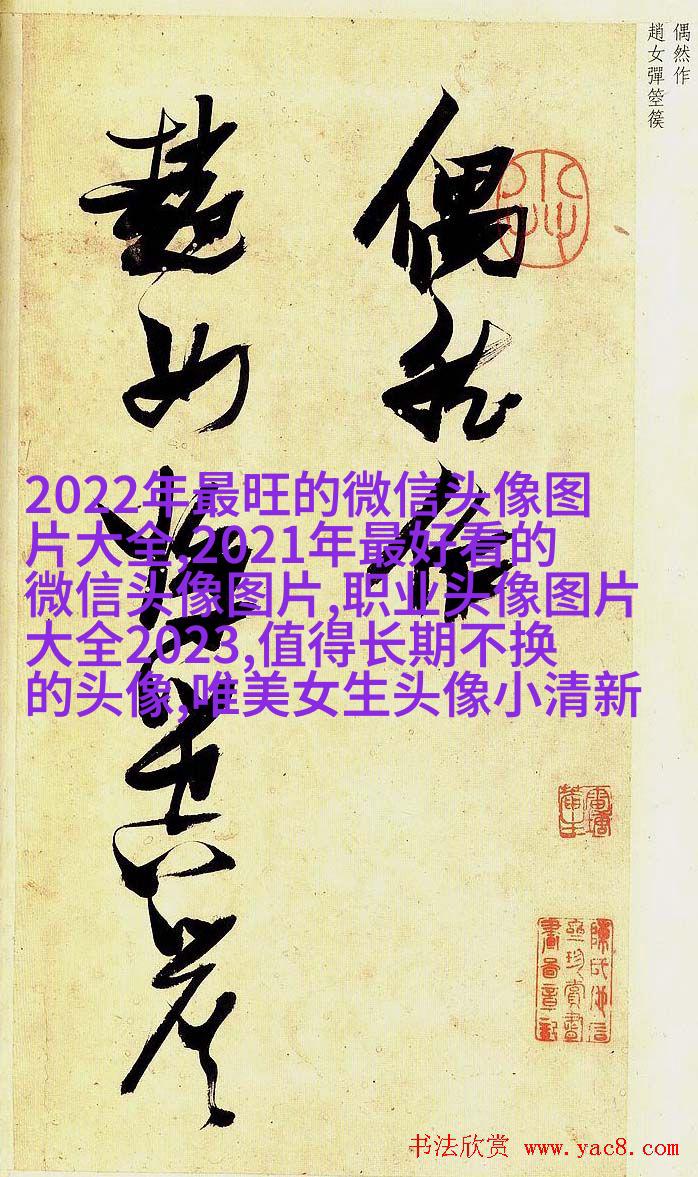 偶然作
趙女彈箜篌
偶然作
趙女彈箜篌
2022年最旺的微信头像图
片大全,2021年最好看的
微信头像图片,职业头像图片
大全2023,值得长期不换
的头像,唯美女生头像小清新
书法欣赏 www.yac8.com